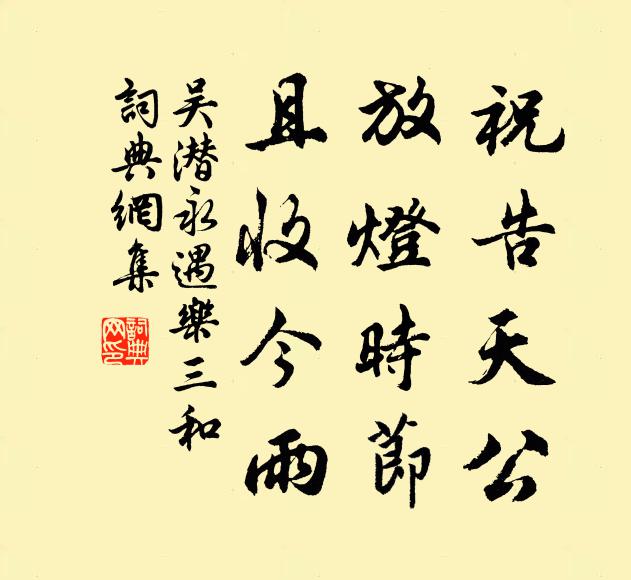 祝告天公
放燈時節
且收今雨
吴潜永遇樂三和
詞典網集
詞典网印